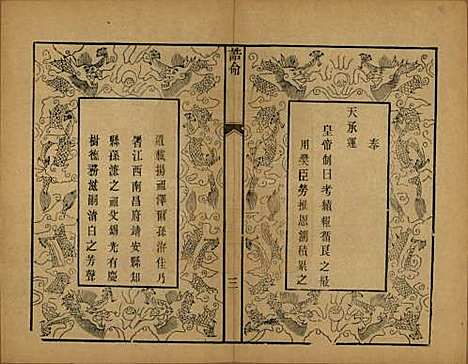 奉
天承運
皇帝制曰考績報循良之最
用奬臣勞推恩溯積累之
誥命
三
遺載揚祖澤爾孫詒任乃
署江西南昌府靖安縣知
縣孫詒之祖父錫光有慶
樹德務滋嗣清白之芳聲